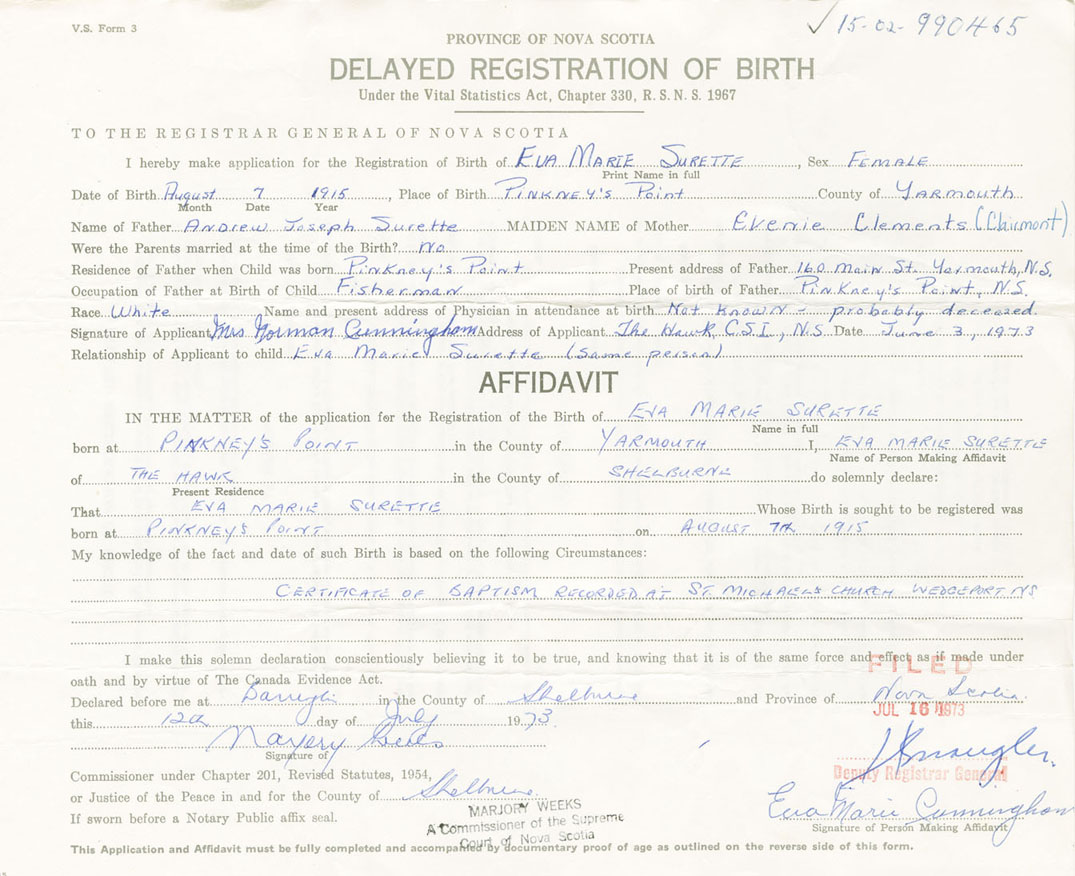 V.S. Form 3
✓ 15-02-990465
PROVINCE OF NOVA SCOTIA
DELAYED REGISTRATION OF BIRTH
Under the Vital Statistics Act, Chapter 330, R.S.N.S. 1967
TO THE REGISTRAR GENERAL OF NOVA SCOTIA
I hereby make application for the Registration of Birth of EVA MARIE SURETTE, Sex FEMALE
Print Name in full
Date of Birth August 7 1915, Place of Birth PINKNEY'S POINT County of YARMOUTH
Month Date Year
Name of Father ANDREW JOSEPH SURETTE MAIDEN NAME of Mother EVENIE CLEMENTS (Clairmont)
Were the Parents married at the time of the Birth? No
Residence of Father when Child was born Pinkney's Point Present address of Father 160 Main St. Yarmouth, N.S.
Occupation of Father at Birth of Child Fisherman Place of birth of Father Pinkney's Point, N.S.
Race White Name and present address of Physician in attendance at birth Not Known - probably deceased.
Signature of Applicant Mrs Norman Cunningham Address of Applicant The Hawk, C.S.I., N.S. Date June 3, 1973
Relationship of Applicant to child Eva Marie Surette (Same person)
AFFIDAVIT
IN THE MATTER of the application for the Registration of the Birth of EVA MARIE SURETTE
Name in full
born at PINKNEY'S POINT in the County of YARMOUTH I, EVA MARIE SURETTE
Name of Person Making Affidavit
of THE HAWK in the County of SHELBURNE do solemnly declare:
Present Residence
That EVA MARIE SURETTE Whose Birth is sought to be registered was
born at PINKNEY'S POINT on AUGUST 7TH 1915
My knowledge of the fact and date of such Birth is based on the following Circumstances:
CERTIFICATE OF BAPTISM RECORDED AT ST. MICHAEL'S CHURCH WEDGEPORT NS
I make this solemn declaration conscientiously believing it to be true, and knowing that it is of the same force and effect as if made under
FILED
oath and by virtue of The Canada Evidence Act.
Declared before me at in the County of Shelburne and Province of Nova Scotia.
JUL 16 1973
this 12th day of July 1973.
Signature of
Commissioner under Chapter 201, Revised Statutes, 1954,
Deputy Registrar General
or Justice of the Peace in and for the County of Shelburne
MARJORY WEEKS
A Commissioner of the Supreme
Court of Nova Scotia
Eva Marie Cunningham
Signature of Person Making Affidavit
If sworn before a Notary Public affix seal.
This Application and Affidavit must be fully completed and accompanied by documentary proof of age as outlined on the reverse side of this form.